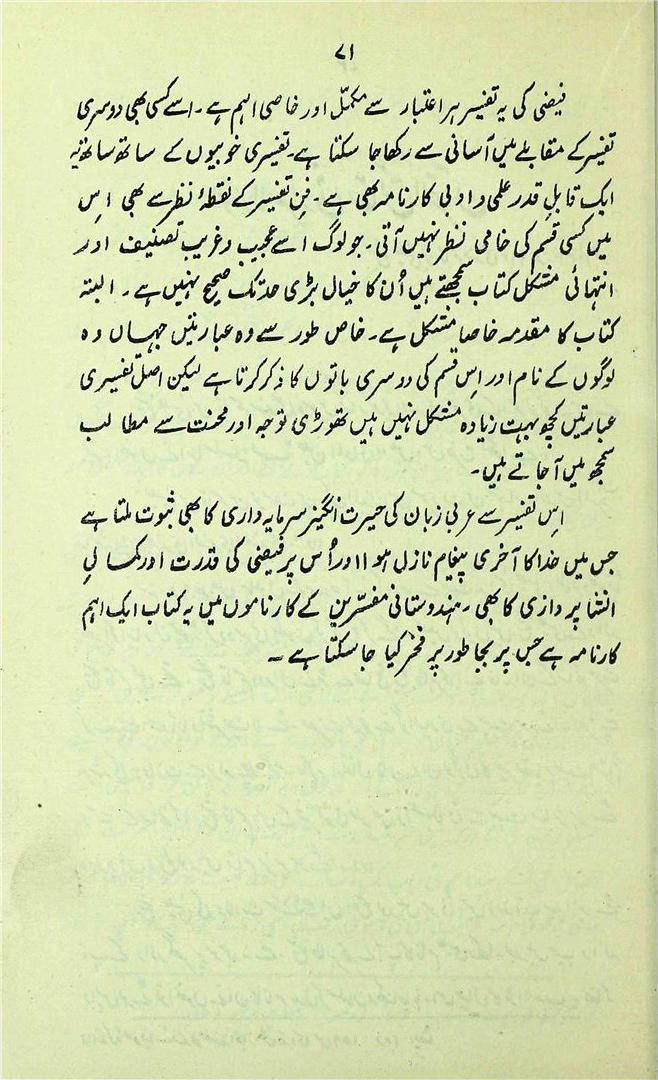 ۷۱
فیضی کی یہ تفسیر ہر اعتبار سے مکمّل اور خاصی اہم ہے۔ اسے کسی بھی دوسری
تفسیر کے مقابلے میں آسانی سے رکھا جا سکتا ہے۔ تفسیری خوبیوں کے ساتھ ساتھ یہ
ایک قابلِ قدر علمی و ادبی کارنامہ بھی ہے۔ فنِ تفسیر کے نقطۂ نظر سے بھی اس
میں کسی قسم کی خامی نظر نہیں آتی۔ جو لوگ اسے عجیب و غریب تصنیف اور
انتہائی مشکل کتاب سمجھتے ہیں اُن کا خیال بڑی حد تک صحیح نہیں ہے۔ البتہ
کتاب کا مقدمہ خاصا مشکل ہے۔ خاص طور سے وہ عبارتیں جہاں وہ
لوگوں کے نام اور اس قسم کی دوسری باتوں کا ذکر کرتا ہے لیکن اصل تفسیری
عبارتیں کچھ بہت زیادہ مشکل نہیں ہیں تھوڑی توجہ اور محنت سے مطالب
سمجھ میں آ جاتے ہیں۔
اس تفسیر سے عربی زبان کی حیرت انگیز سرمایہ داری کا بھی ثبوت ملتا ہے
جس میں خدا کا آخری پیغام نازل ہوا اور اُس پر فیضی کی قدرت اور کمالِ
انشا پردازی کا بھی۔ ہندوستانی مفسّرین کے کارناموں میں یہ کتاب ایک اہم
کارنامہ ہے جس پر بجا طور پر فخر کیا جا سکتا ہے ۔